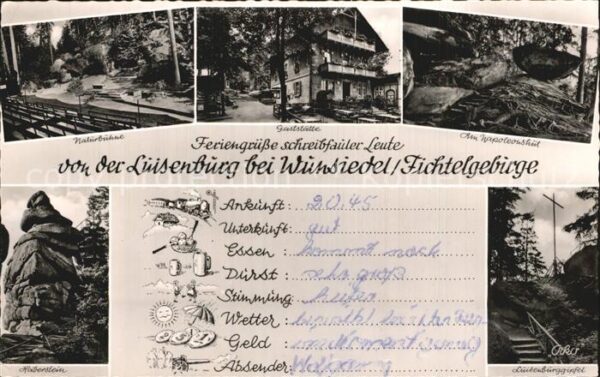 Naturbühne
Gaststätte
Am Napoleonshut
Feriengrüße schreibfauler Leute
von der Luisenburg bei Wunsiedel/Fichtelgebirge
Ankunft: 20.45
Unterkunft: gut
Essen: kommt noch
Durst: sehr groß
Stimmung
Wetter
Geld
Absender: Wolfgang
Haberstein
Luisenburggipfel